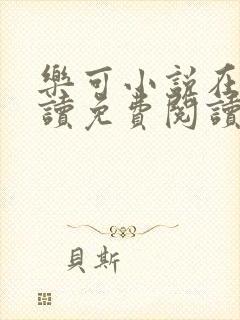 樂可小說在
讀免費閱讀
貝斯